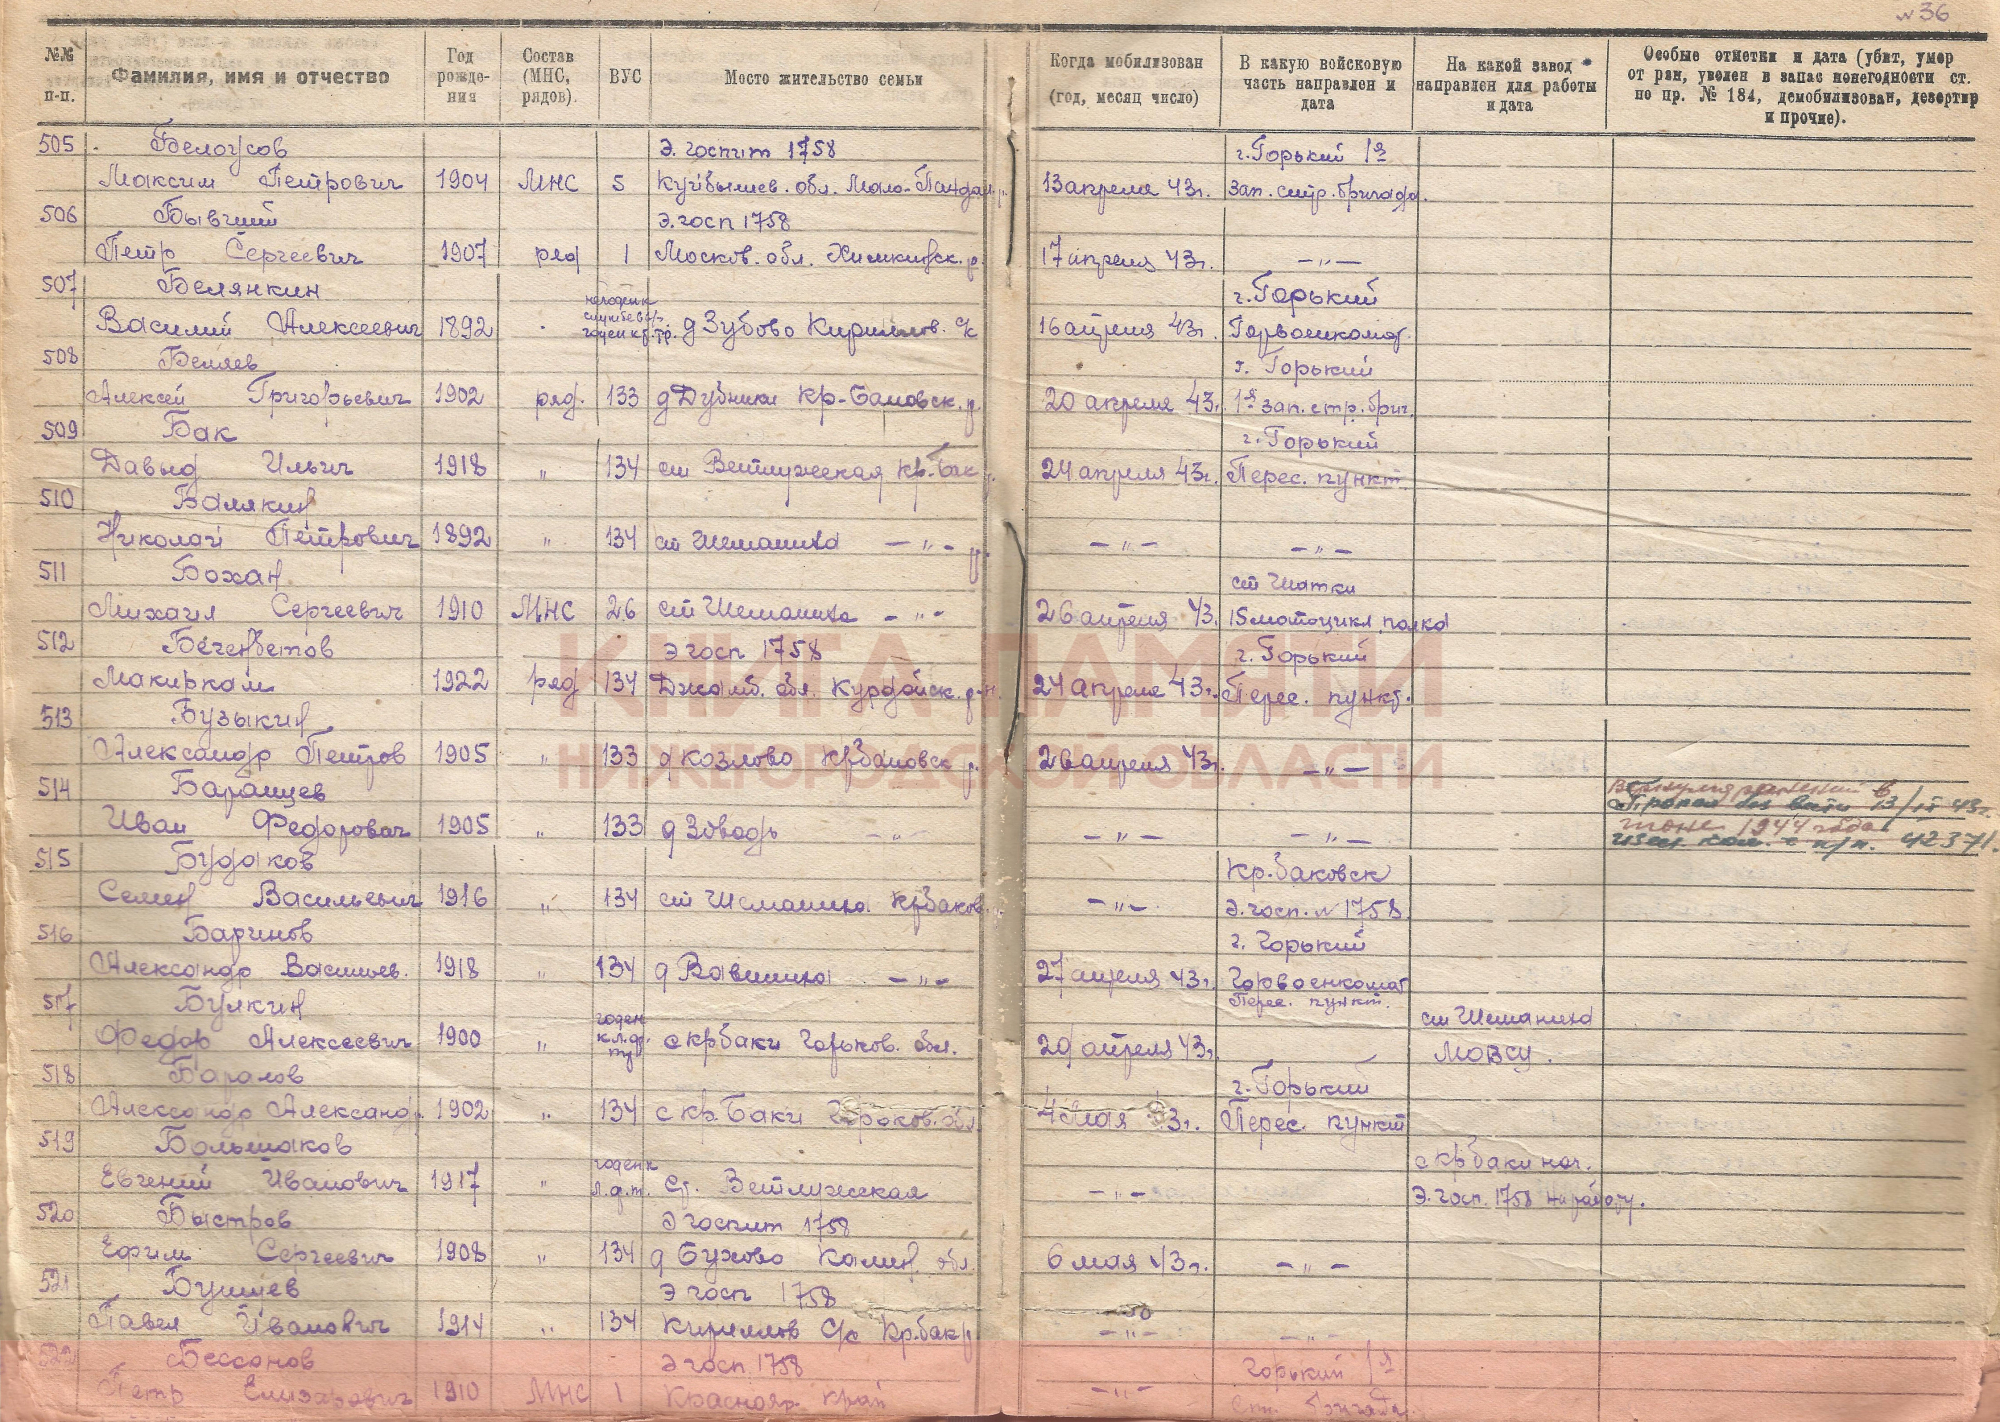 № 36
№№ п-п.
Фамилия, имя и отчество
Год рожде-ния
Состав (МНС, рядов).
ВУС
Место жительство семьи
Когда мобилизован (год, месяц число)
В какую войсковую часть направлен и дата
На какой завод направлен для работы и дата
Особые отметки и дата (убит, умер от ран, уволен в запас понегодности ст. по пр. № 184, демобилизован, дезертир и прочие).
505 Белоусов Э. госпит 1758 г. Горький 1я
Максим Петрович 1904 МНС 5 Куйбышев. обл. Мало- 13 апреля 43г. Зап. стр. бригада
506 Бывший Э. госп 1758
Петр Сергеевич 1907 ряд 1 Москов. обл. Химкинск. р. 17 апреля 43г. — " —
507 Белянкин г. Горький
Василий Алексеевич 1892 д Зубово Кириллов. с/с 16 апреля 43г. Горвоенкомат.
508 Беляев г. Горький
Алексей Григорьевич 1902 ряд. 133 д Дубники Кр-Баковск. р. 20 апреля 43г. 1я зап. стр. бриг.
509 Бак г. Горький
Давыд Ильич 1918 " 134 ст Ветлужская Кр. Бак 24 апреля 43г. Перес. пункт.
510 Валякин
Николай Петрович 1892 " 134 ст Шеманиха — " — — " — — " —
511 Бохан ст Шатки
Михаил Сергеевич 1910 МНС 26 ст Шеманиха — " — 26 апреля 43. 15 мотоцикл. полка
512 Э госп 1758 г. Горький
Макиркам 1922 ряд 134 Джамб. обл. Курдайск. р-н. 24 апреля 43г. Перес. пункт.
513 Бузыкин
Александр Петров 1905 " 133 д Козлово КрБаковск р. 26 апреля 43г. — " —
514 Баранцев
Иван Федорович 1905 " 133 д Зубово — " — — " — — " —
Вернулся раненый в
Пропал без вести 13/ 43г.
июне 1944 года
изв. ком. с п/п. 42371.
515 Будаков Кр. баковск
Семен Васильевич 1916 " 134 ст Шеманиха КрБаков. — " — Э. госп. № 1758
516 Баринов г. Горький
Александр Васильев. 1918 " 134 д — " — 27 апреля 43г. Горвоенкомат
517 Булкин Перес. пункт. ст Шеманиха
Федор Алексеевич 1900 " годен с КрБаки Горьков. обл. 29 апреля 43г. МОВСУ.
518 Баралов г. Горький
Александр Александр. 1902 " 134 с кр. Баки Горьков. обл 4 мая 43г. Перес. пункт
519 Большаков с КрБаки нач.
Евгений Иванович 1917 " годен к л.ф.т. Ст. Ветлужская — " — Э. госп. 1758 на работу.
520 Быстров Э госпит 1758
Ефим Сергеевич 1908 " 134 д Бухово Калин. обл. 6 мая 43г. — " —
521 Э госп 1758
Павел Иванович 1914 " 134 Кириллов С/с Кр. бак р — " — — " —
522 Бессонов Э госп 1758 Горький 1я
Петр Елизарович 1910 МНС 1 Краснояр. Край — " — бригада
КНИГА ПАМЯТИ
НИЖЕГОРОДСКОЙ ОБЛАСТИ